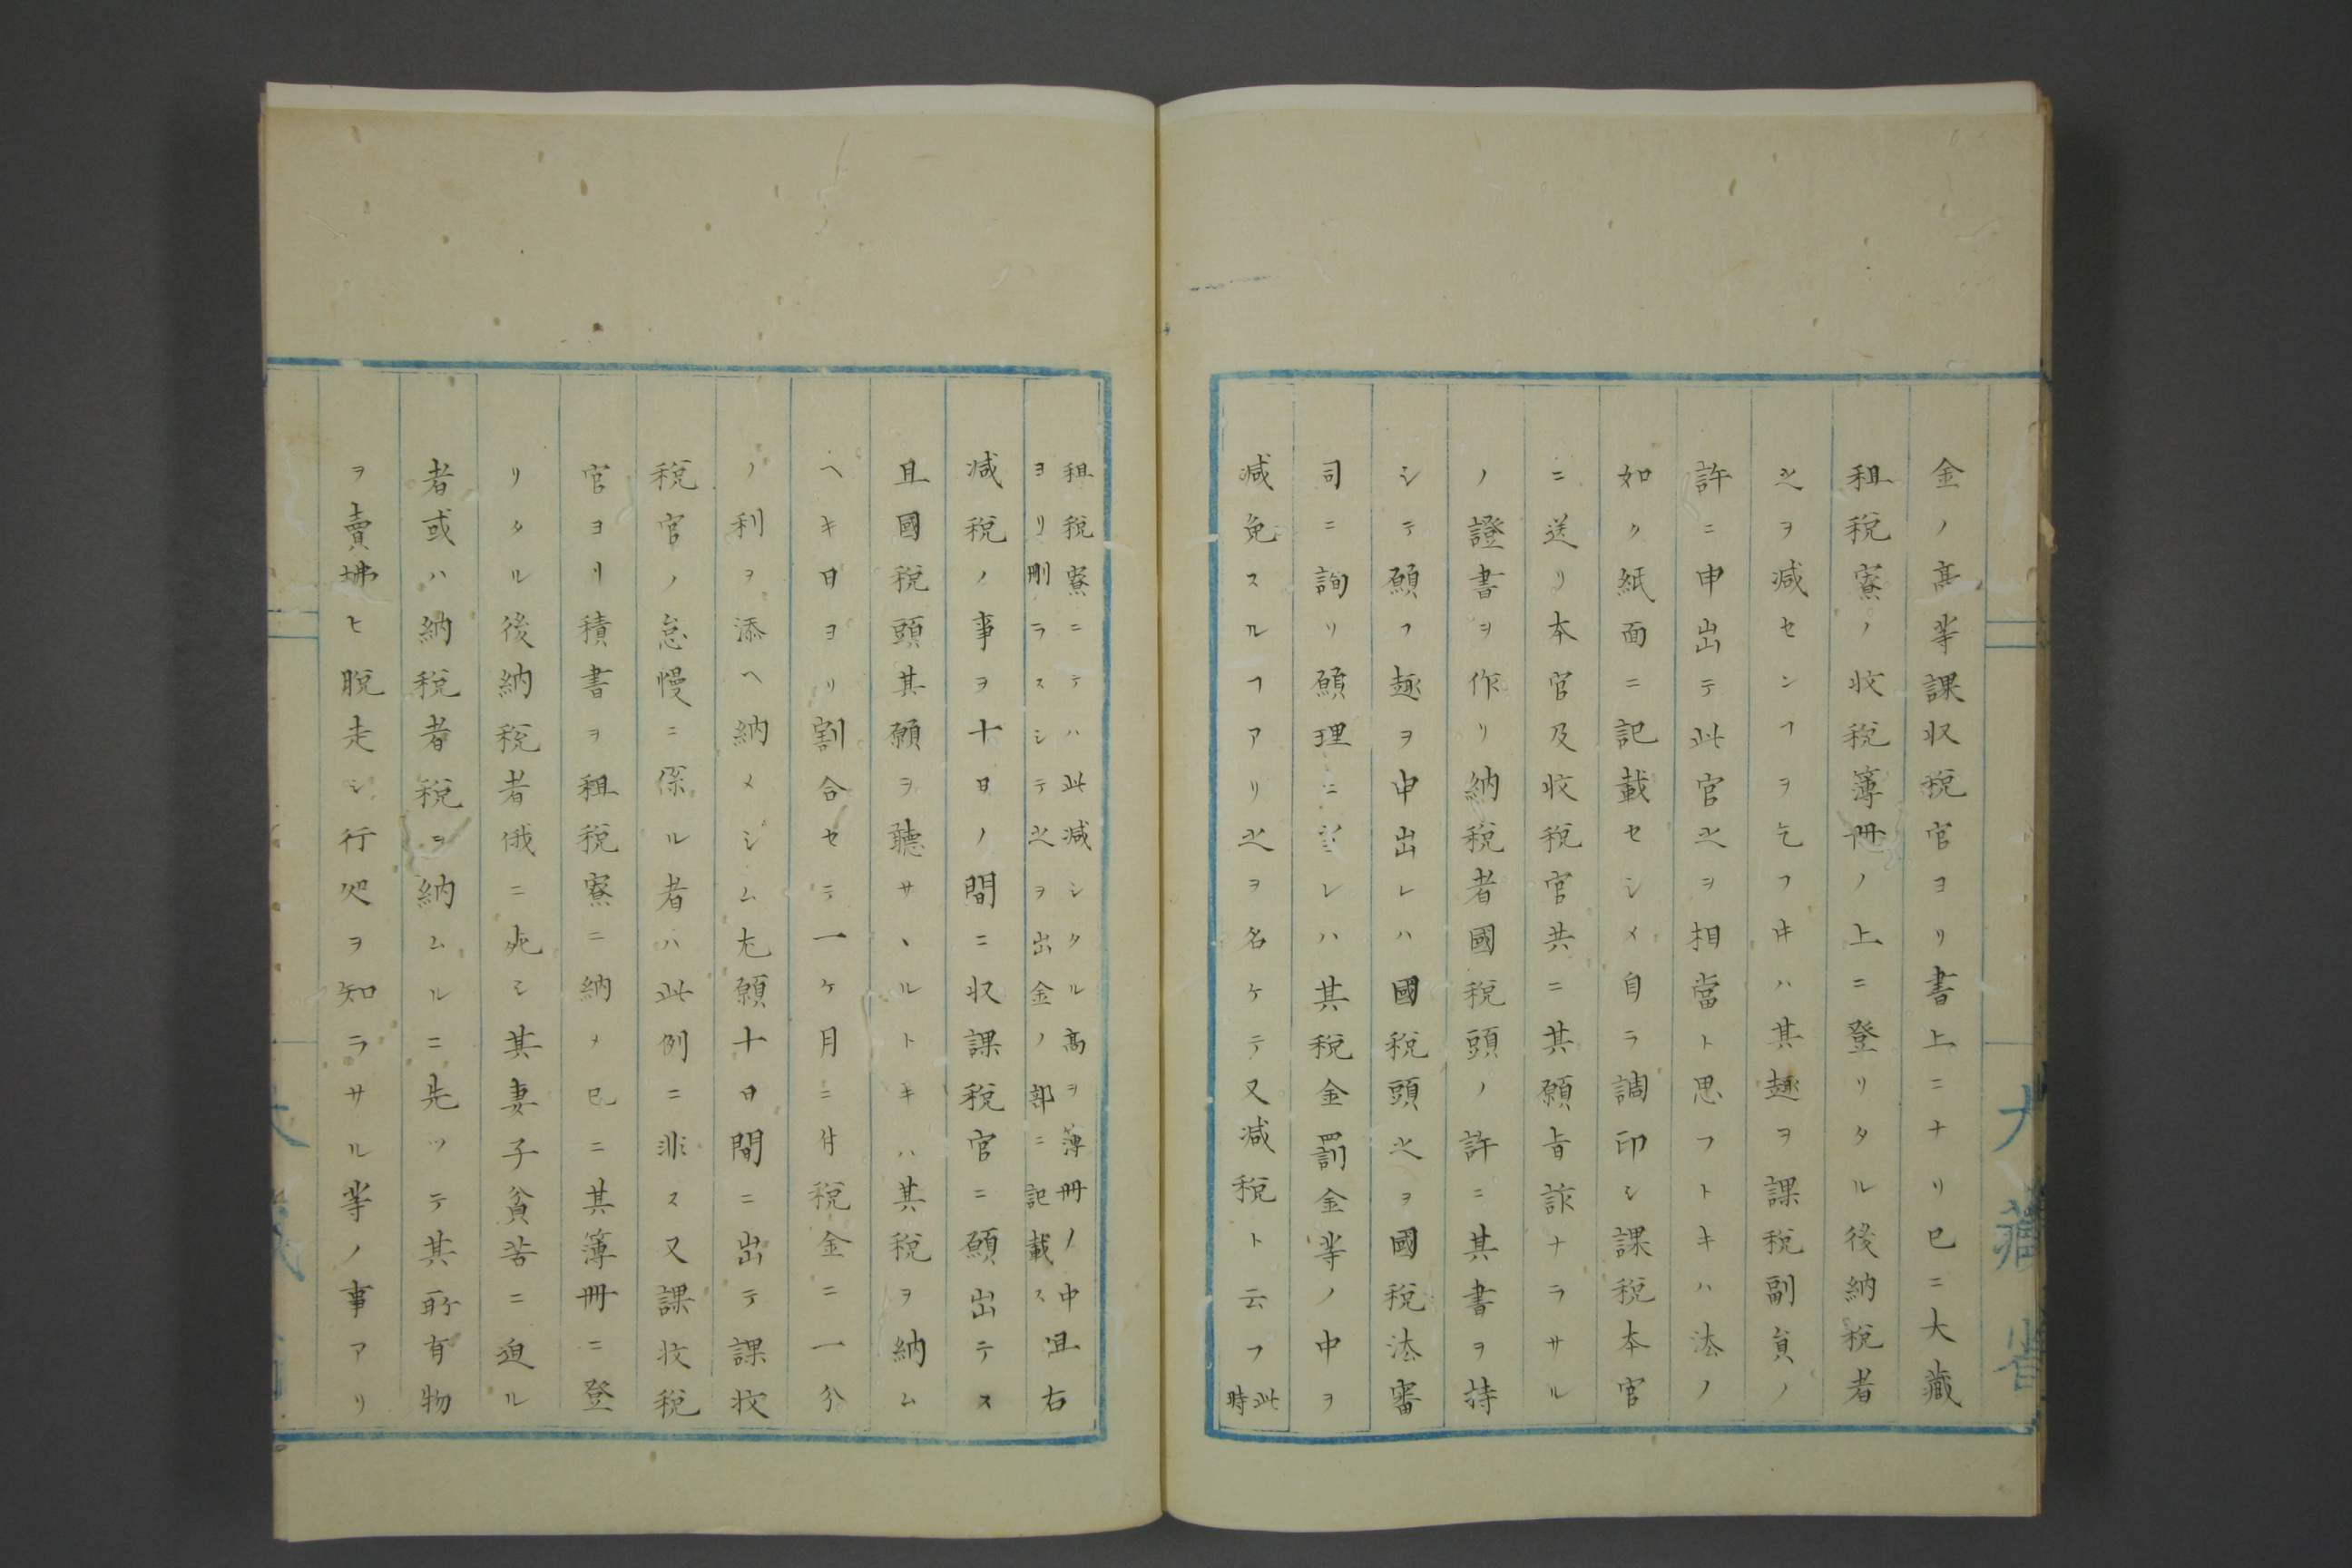 金ノ高等課収税官ヨリ書上ニナリ已ニ大藏
租税寮ノ收税簿冊ノ上ニ登リタル後納税者
之ヲ減センヿヲ乞フ井ハ其趣ヲ課税副負ノ
許ニ申出テ此官之ヲ相當ト思フトキハ法ノ
如ク紙面ニ記載セシメ自ラ調印シ課税本官
ニ送リ本官及收税官共ニ其願旨詼ナラサル
ノ證書ヲ作リ納税者國税頭ノ許ニ其書ヲ持
シテ願フ趣ヲ申出レハ國税頭之ヲ國税法審
司ニ詢リ願理ニレハ其税金罰金等ノ中ヲ
減免スルヿアリ之ヲ名ケテ又減税ト云フ此
時
租税寮ニテハ此減シタル高ヲ薄冊ノ中且右
ヨリ刪ラスシテ之ヲ出金ノ部ニ記載ス
減税ノ事ヲ十日ノ間ニ収課税官ニ願出テス
且國税頭其願ヲ聴サヽルトキハ其税ヲ納ム
ヘキ日ヨリ割合セテ一ケ月ニ付税金ニ一分
ノ利ヲ添ヘ納メシム尤願十日間ニ出テ課收
税官ノ怠慢ニ係ル者ハ此例ニ非ス又課收税
官ヨリ積書ヲ租税寮ニ納メ已ニ其簿冊ニ登
リタル後納税者俄ニ死シ其妻子貧苦ニ迫ル
者或ハ納税者税ヲ納ムルニ先ツテ其所有物
ヲ賣拂ヒ脱走シ行处ヲ知ラサル等ノ事アリ
大藏省